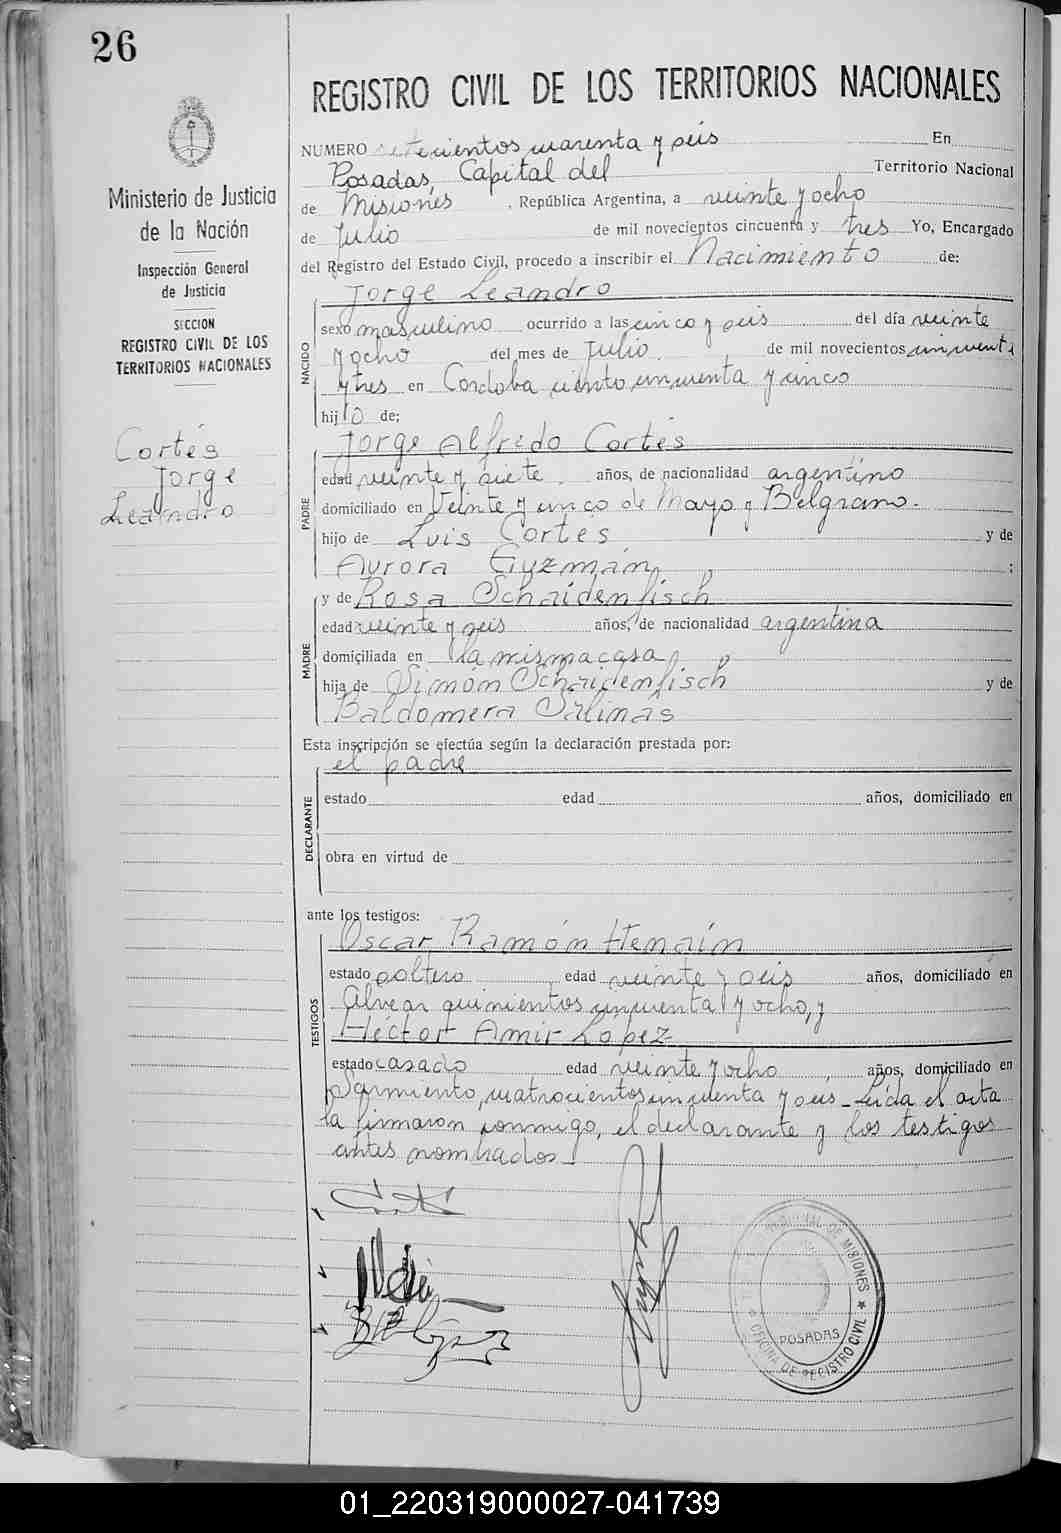 26
Ministerio de Justicia
de la Nación
Inspección General
de Justicia
SECCION
REGISTRO CIVIL DE LOS
TERRITORIOS NACIONALES
Cortés
Jorge
Leandro
REGISTRO CIVIL DE LOS TERRITORIOS NACIONALES
NUMERO setecientos cuarenta y seis En
Posadas, Capital del Territorio Nacional
de Misiones, República Argentina, a veinte y ocho
de Julio de mil novecientos cincuenta y tres Yo, Encargado
del Registro del Estado Civil, procedo a inscribir el Nacimiento de:
NACIDO
Jorge Leandro
sexo masculino ocurrido a las cinco y seis del día veinte
y ocho del mes de Julio de mil novecientos cincuenta
y tres en Córdoba ciento cincuenta y cinco
hijo de;
PADRE
Jorge Alfredo Cortés
edad veinte y siete años, de nacionalidad argentino
domiciliado en Veinte y cinco de Mayo y Belgrano.
hijo de Luis Cortés y de
Aurora Guzmán ;
MADRE
y de Rosa Schaidenfisch
edad veinte y seis años, de nacionalidad argentina
domiciliada en la misma casa
hija de Simón Schaidenfisch y de
Baldomera Salinas
Esta inscripción se efectúa según la declaración prestada por:
DECLARANTE
el padre
estado edad años, domiciliado en
obra en virtud de
ante los testigos:
TESTIGOS
Oscar Ramón Henain
estado soltero edad veinte y seis años, domiciliado en
Alvear quinientos cincuenta y ocho, y
Héctor Amir López
estado casado edad veinte y ocho años, domiciliado en
Sarmiento, cuatrocientos cincuenta y seis - Leída el acta
la firmaron conmigo, el declarante y los testigos
antes nombrados.
DE MISIONES
POSADAS
OFICINA DE REGISTRO CIVIL
01_220319000027-041739